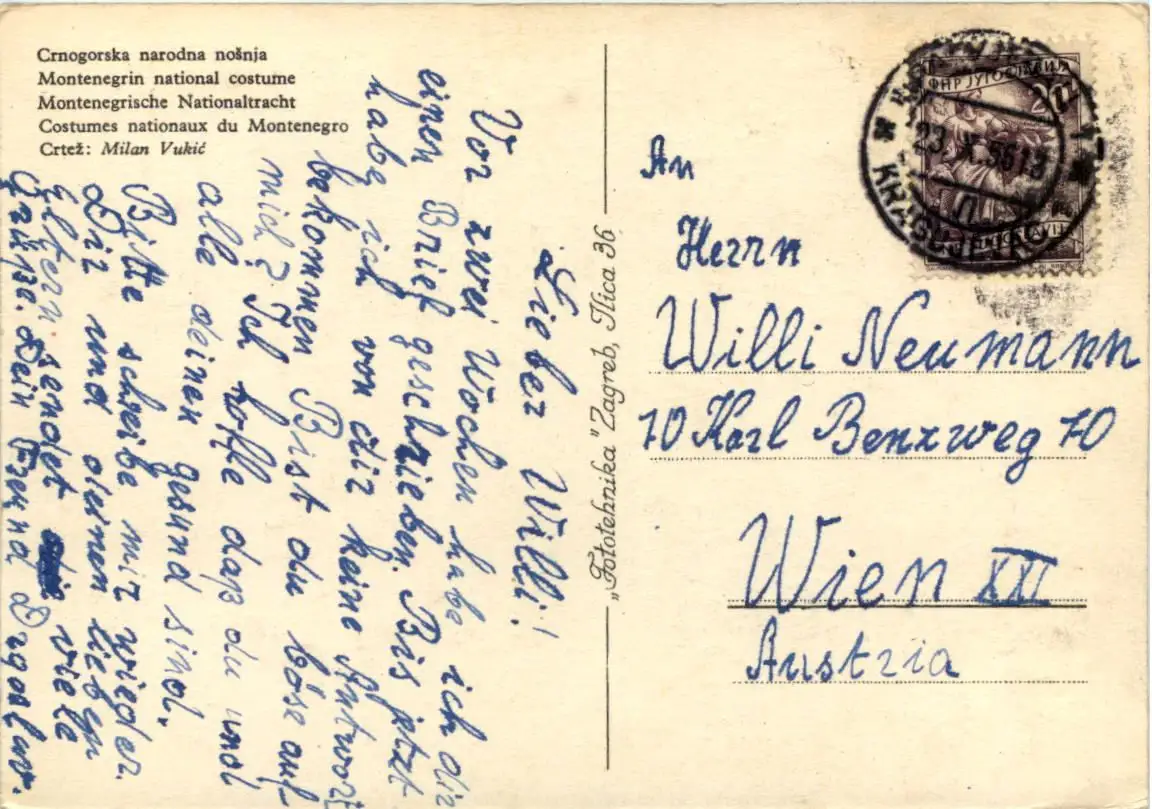 Crnogorska narodna nošnja
Montenegrin national costume
Montenegrische Nationaltracht
Costumes nationaux du Montenegro
Crtež: Milan Vukić
Lieber Willi!
Vor zwei Wochen habe ich dir
einen Brief geschrieben. Bis jetzt
habe ich von dir keine Antwort
bekommen. Bist du böse auf
mich? Ich hoffe daß du und
alle deinen gesund sind.
Bitte schreibe mir wieder.
Dir und deinen lieben
Eltern sendet viele
Grüße. Dein Freund Dragoslav.
"Fototehnika" Zagreb, Ilica 36
ФНР ЈУГОСЛАВИЈА
20
23. X. 56 13
KRAGUJEVAC
An
Herrn
Willi Neumann
70 Karl Benzweg 70
Wien XXI
Austria